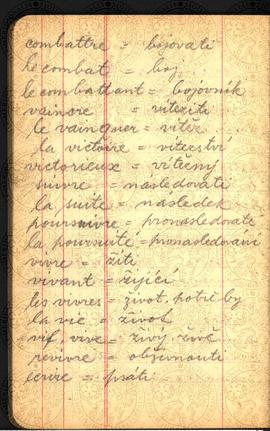 combattre = bojovati
le combat = boj
le combattant = bojovník
vaincre = vítěziti
le vainquer = vítěz
la victoire = vítezství
victorieux = vítězný
suivre = následovati
la suite = následek
poursuivre = pronasledovati
la poursuite = pronasledování
vivre = žíti
vivant = žijící
les vivres = život. potřeby
la vie = život
vif, vive = živý, živě
revivre = obživnouti
écrire = psáti